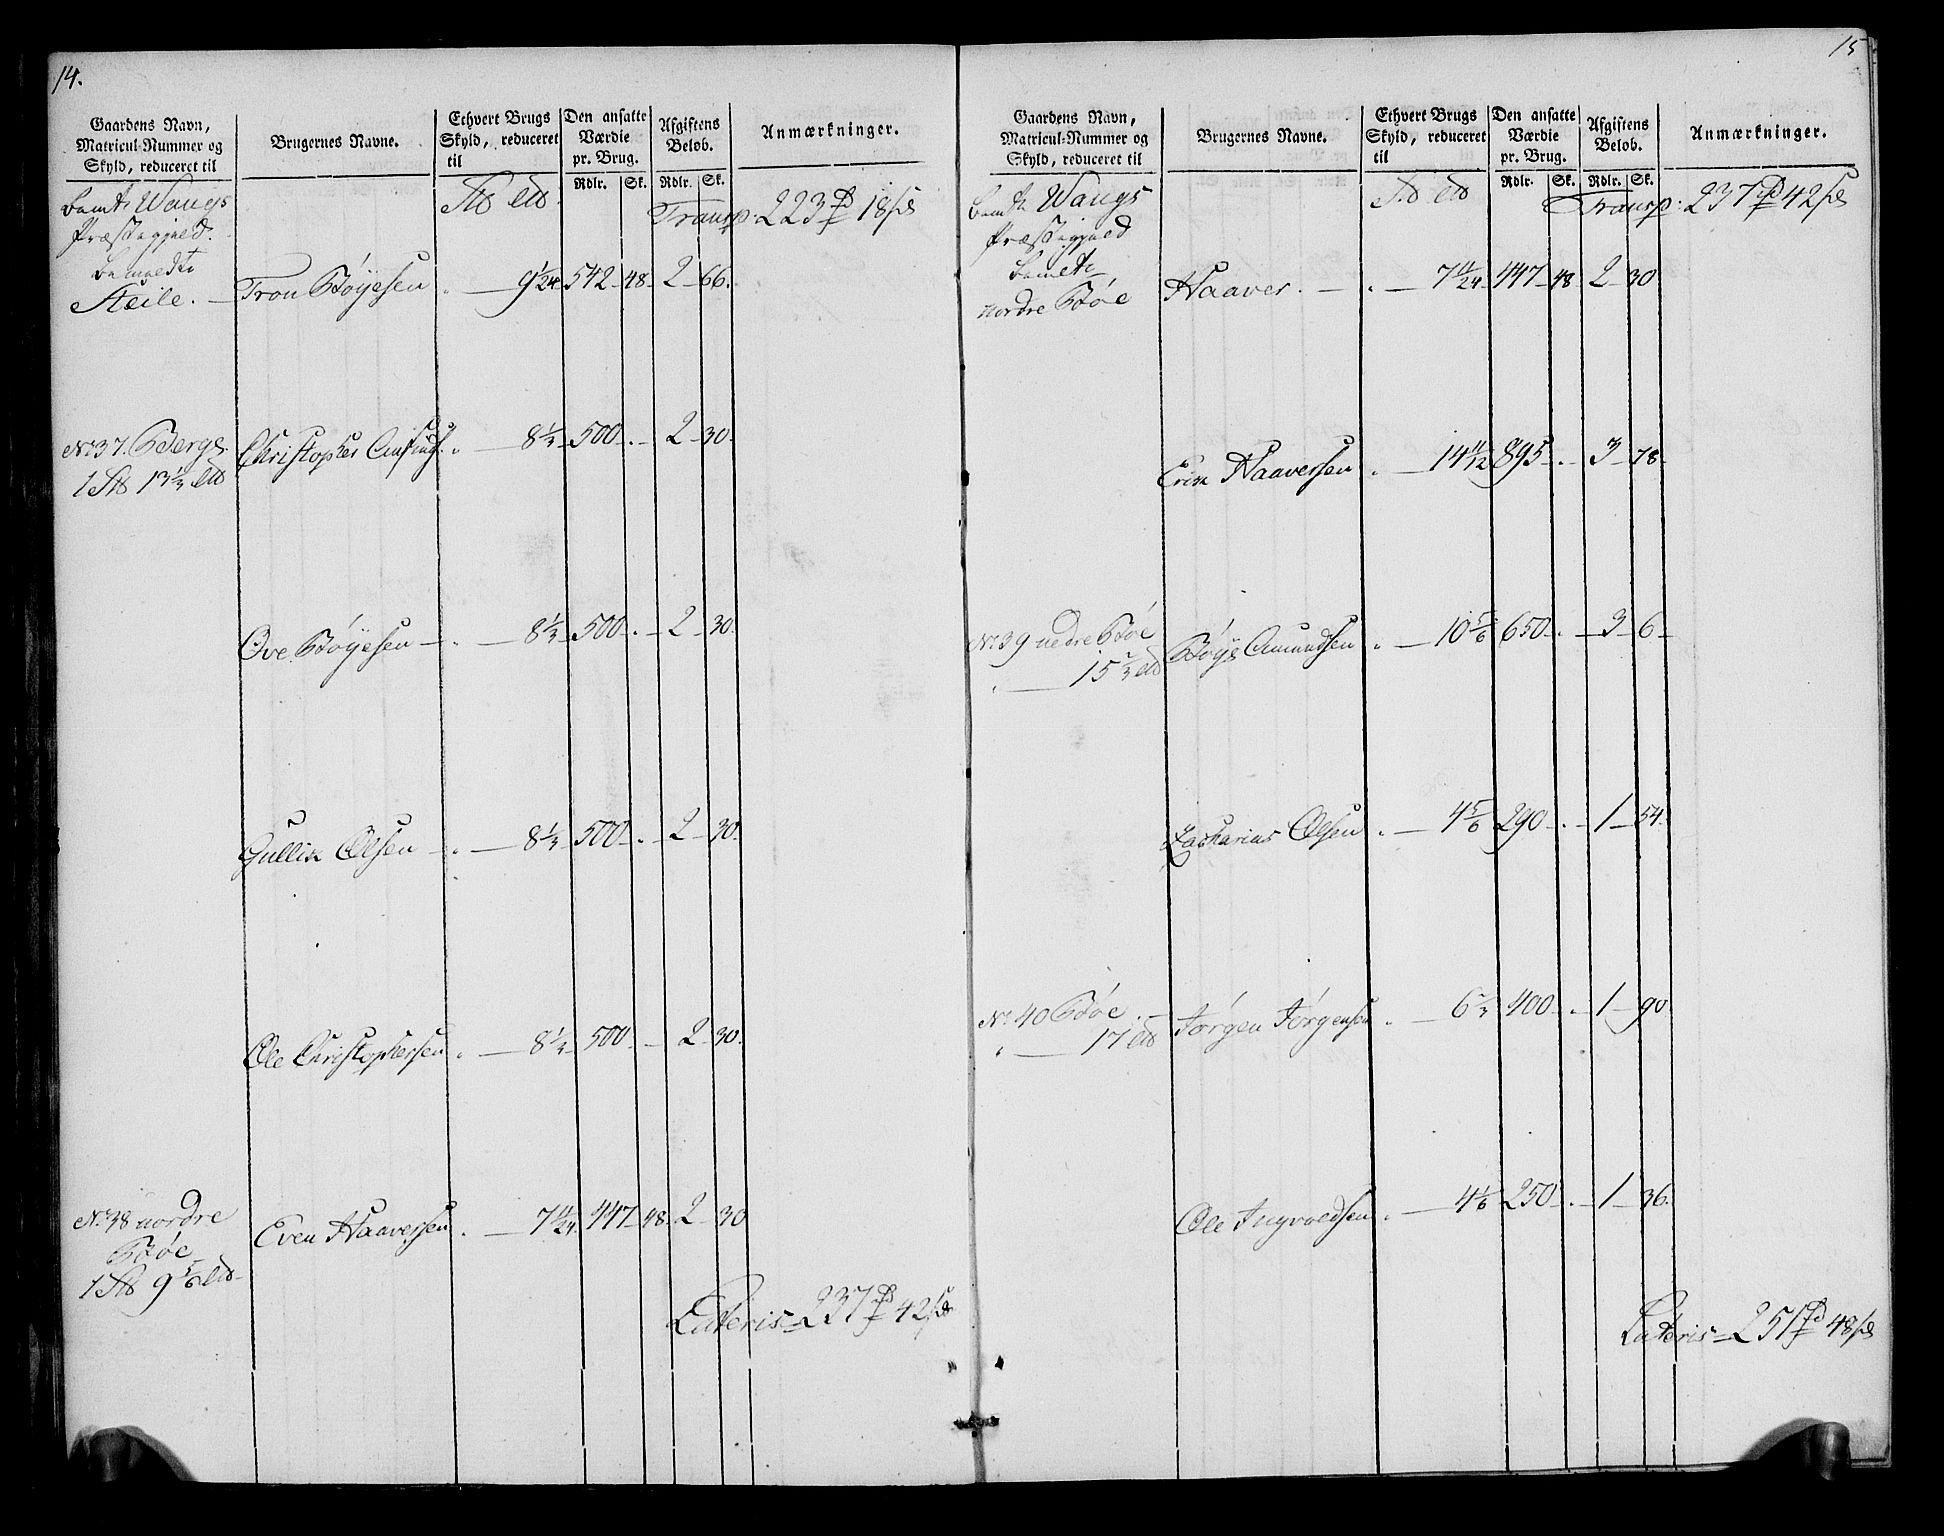 14.
Gaardens Navn,
Matricul-Nummer og
Skyld, reduceret til
Brugernes Navne.
Ethvert Brugs
Skyld, reduceret
til
Den ansatte
Værdie
pr. Brug.
Rdlr. Sk.
Afgiftens
Beløb.
Rdlr. Sk.
Anmærkninger.
Wangs
Præstegjeld.
Transp: 223 18 s
bemeldte
Steile. Tron Bøyesen 9 1/24 542 48 2 66.
No 37. Berge Christopher 8 1/3 500 . 2 30.
1 13 1/3
Ove Bøyesen 8 1/3 500 . 2 30.
Gullik Olsen 8 1/3 500 . 2 30.
Ole Christophersen 8 1/3 500 2 30.
No 38 nordre
Bøe
Even Haaversen 7 11/24 447 48. 2 30
1 9 5/6
Lateris 237 42 s
15
Gaardens Navn,
Matricul-Nummer og
Skyld, reduceret til
Brugernes Navne.
Ethvert Brugs
Skyld, reduceret
til
Den ansatte
Værdie
pr. Brug.
Rdlr. Sk.
Afgiftens
Beløb.
Rdlr. Sk.
Anmærkninger.
Wangs
Præstegjeld
Transp: 237 42 s
nordre Bøe Haaver 7 11/24 447 48 2 30
Erik Haaversen 14 11/12 895 . 3 78
No 39 nedre Bøe Bøye Amundsen 10 5/6 650 . 3 6
15 2/3
Zacharias Olsen 4 5/6 290 . 1 54.
No 40 Bøe Jørgen Jørgensen 6 2/3 400 . 1 90
17
Ole Ingvoldsen 4 1/6 250 . 1 36.
Lateris 251 48 s